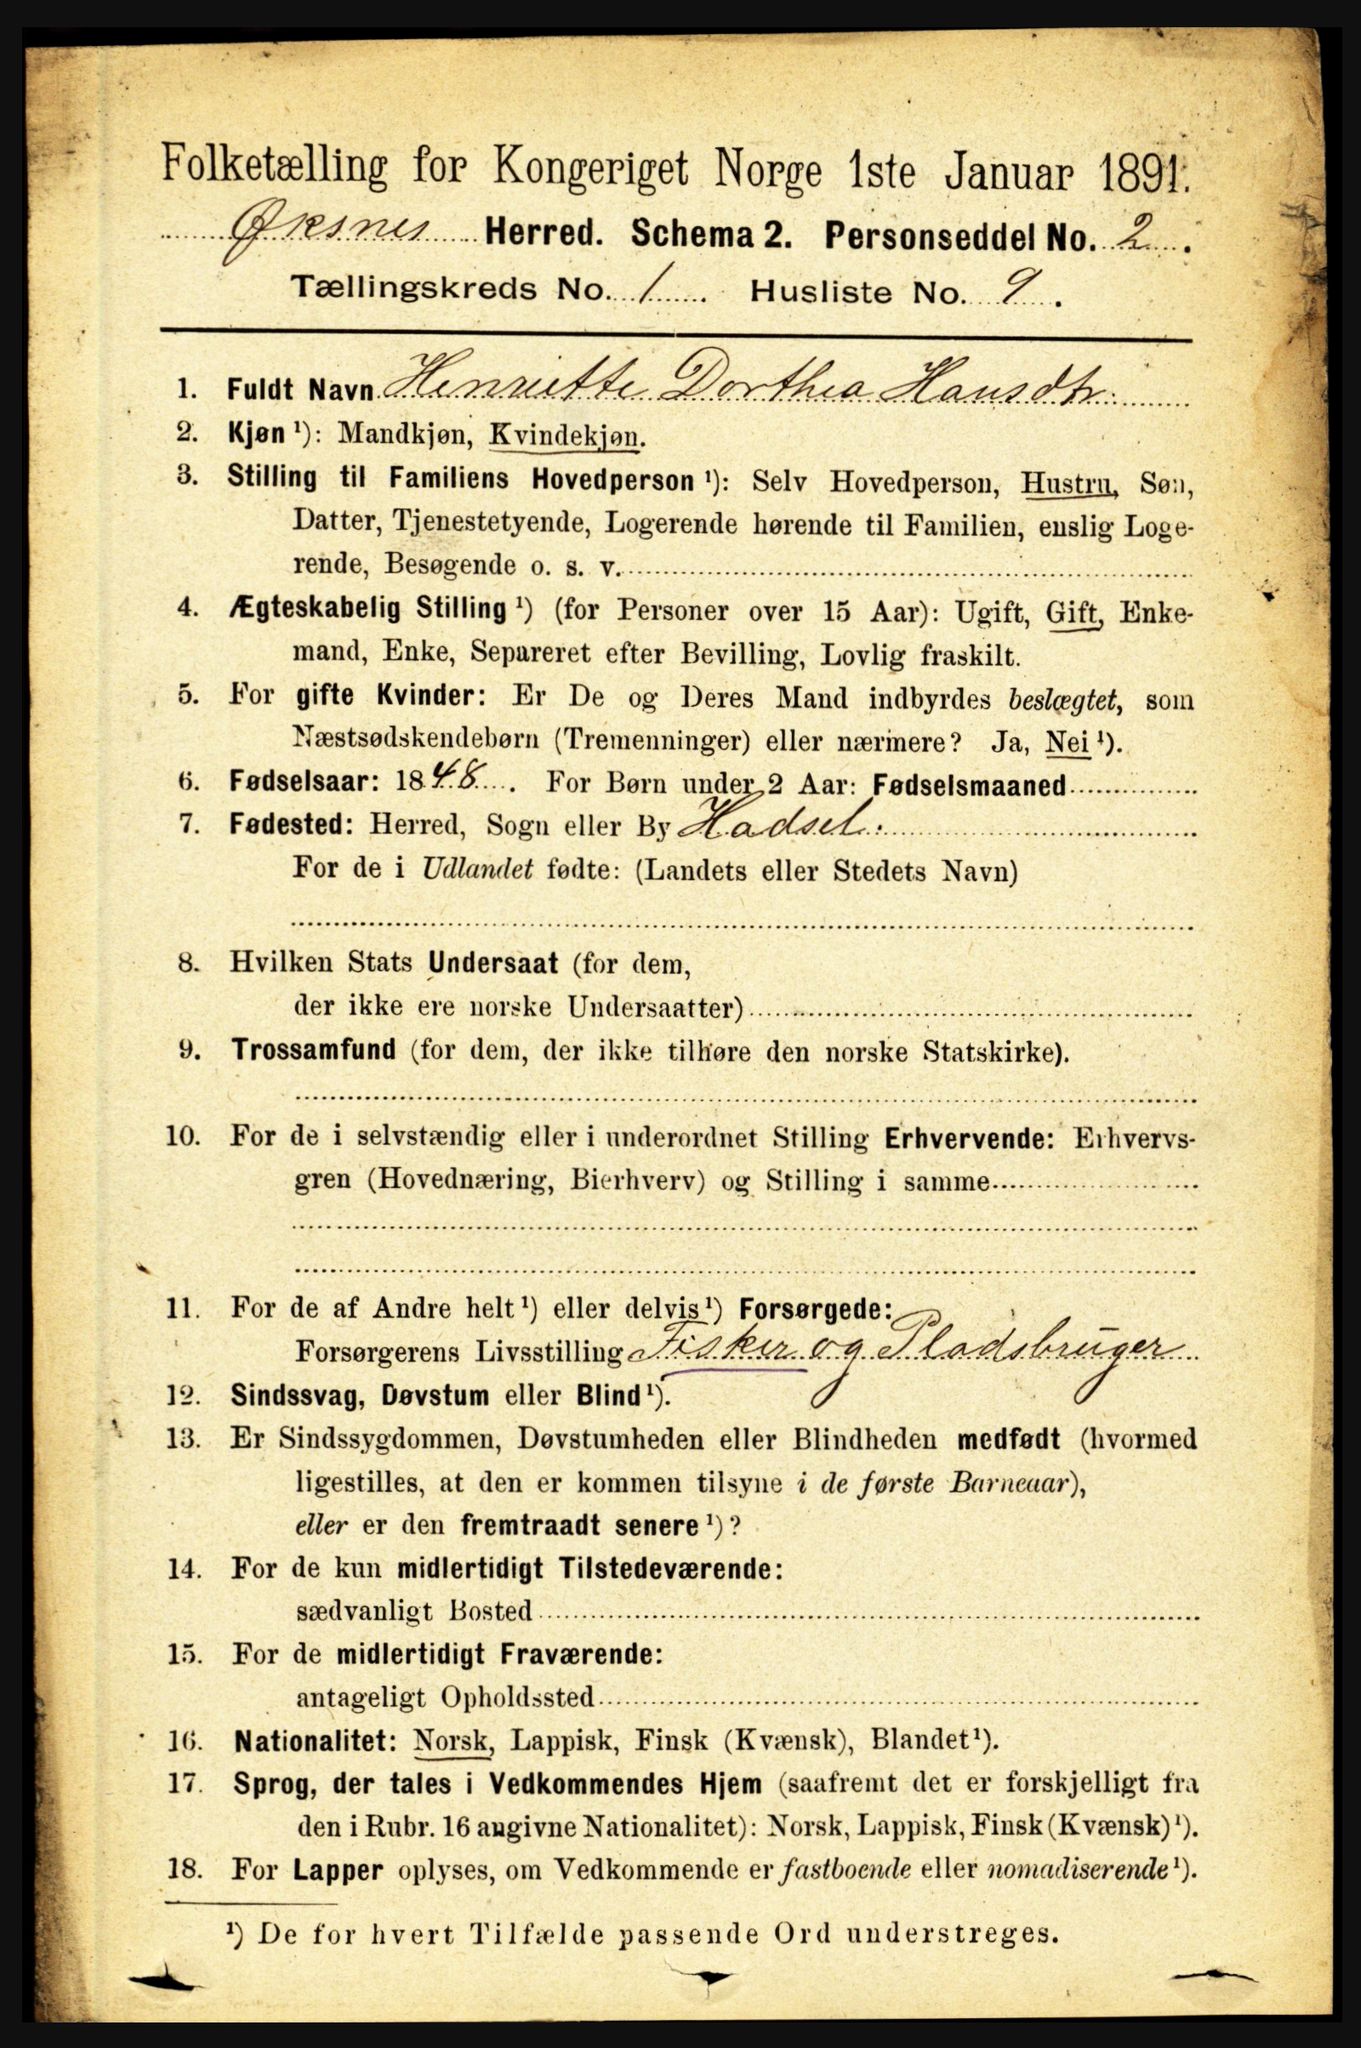 Folketælling for Kongeriget Norge 1ste Januar 1891.
Øksnes Herred. Schema 2. Personseddel No. 2.
Tællingskreds No. 1 Husliste No. 9.
1. Fuldt Navn Henriette Dorthea Hansdtr.
2. Kjøn ¹): Mandkjøn, Kvindekjøn.
3. Stilling til Familiens Hovedperson ¹): Selv Hovedperson, Hustru, Søn,
Datter, Tjenestetyende, Logerende hørende til Familien, enslig Loge-
rende, Besøgende o. s. v.
4. Ægteskabelig Stilling ¹) (for Personer over 15 Aar): Ugift, Gift, Enke-
mand, Enke, Separeret efter Bevilling, Lovlig fraskilt.
5. For gifte Kvinder: Er De og Deres Mand indbyrdes beslægtet, som
Næstsødskendebørn (Tremenninger) eller nærmere? Ja, Nei ¹).
6. Fødselsaar: 1848. For Børn under 2 Aar: Fødselsmaaned
7. Fødested: Herred, Sogn eller By Hadsel.
For de i Udlandet fødte: (Landets eller Stedets Navn)
8. Hvilken Stats Undersaat (for dem,
der ikke ere norske Undersaatter)
9. Trossamfund (for dem, der ikke tilhøre den norske Statskirke).
10. For de i selvstændig eller i underordnet Stilling Erhvervende: Erhvervs-
gren (Hovednæring, Bierhverv) og Stilling i samme
11. For de af Andre helt ¹) eller delvis ¹) Forsørgede:
Forsørgerens Livsstilling Fisker og Pladsbruger
12. Sindssvag, Døvstum eller Blind ¹).
13. Er Sindssygdommen, Døvstumheden eller Blindheden medfødt (hvormed
ligestilles, at den er kommen tilsyne i de første Barneaar),
eller er den fremtraadt senere ¹)?
14. For de kun midlertidigt Tilstedeværende:
sædvanligt Bosted
15. For de midlertidigt Fraværende:
antageligt Opholdssted
16. Nationalitet: Norsk, Lappisk, Finsk (Kvænsk), Blandet ¹).
17. Sprog, der tales i Vedkommendes Hjem (saafremt det er forskjelligt fra
den i Rubr. 16 angivne Nationalitet): Norsk, Lappisk, Finsk (Kvænsk) ¹).
18. For Lapper oplyses, om Vedkommende er fastboende eller nomadiserende ¹).
¹) De for hvert Tilfælde passende Ord understreges.